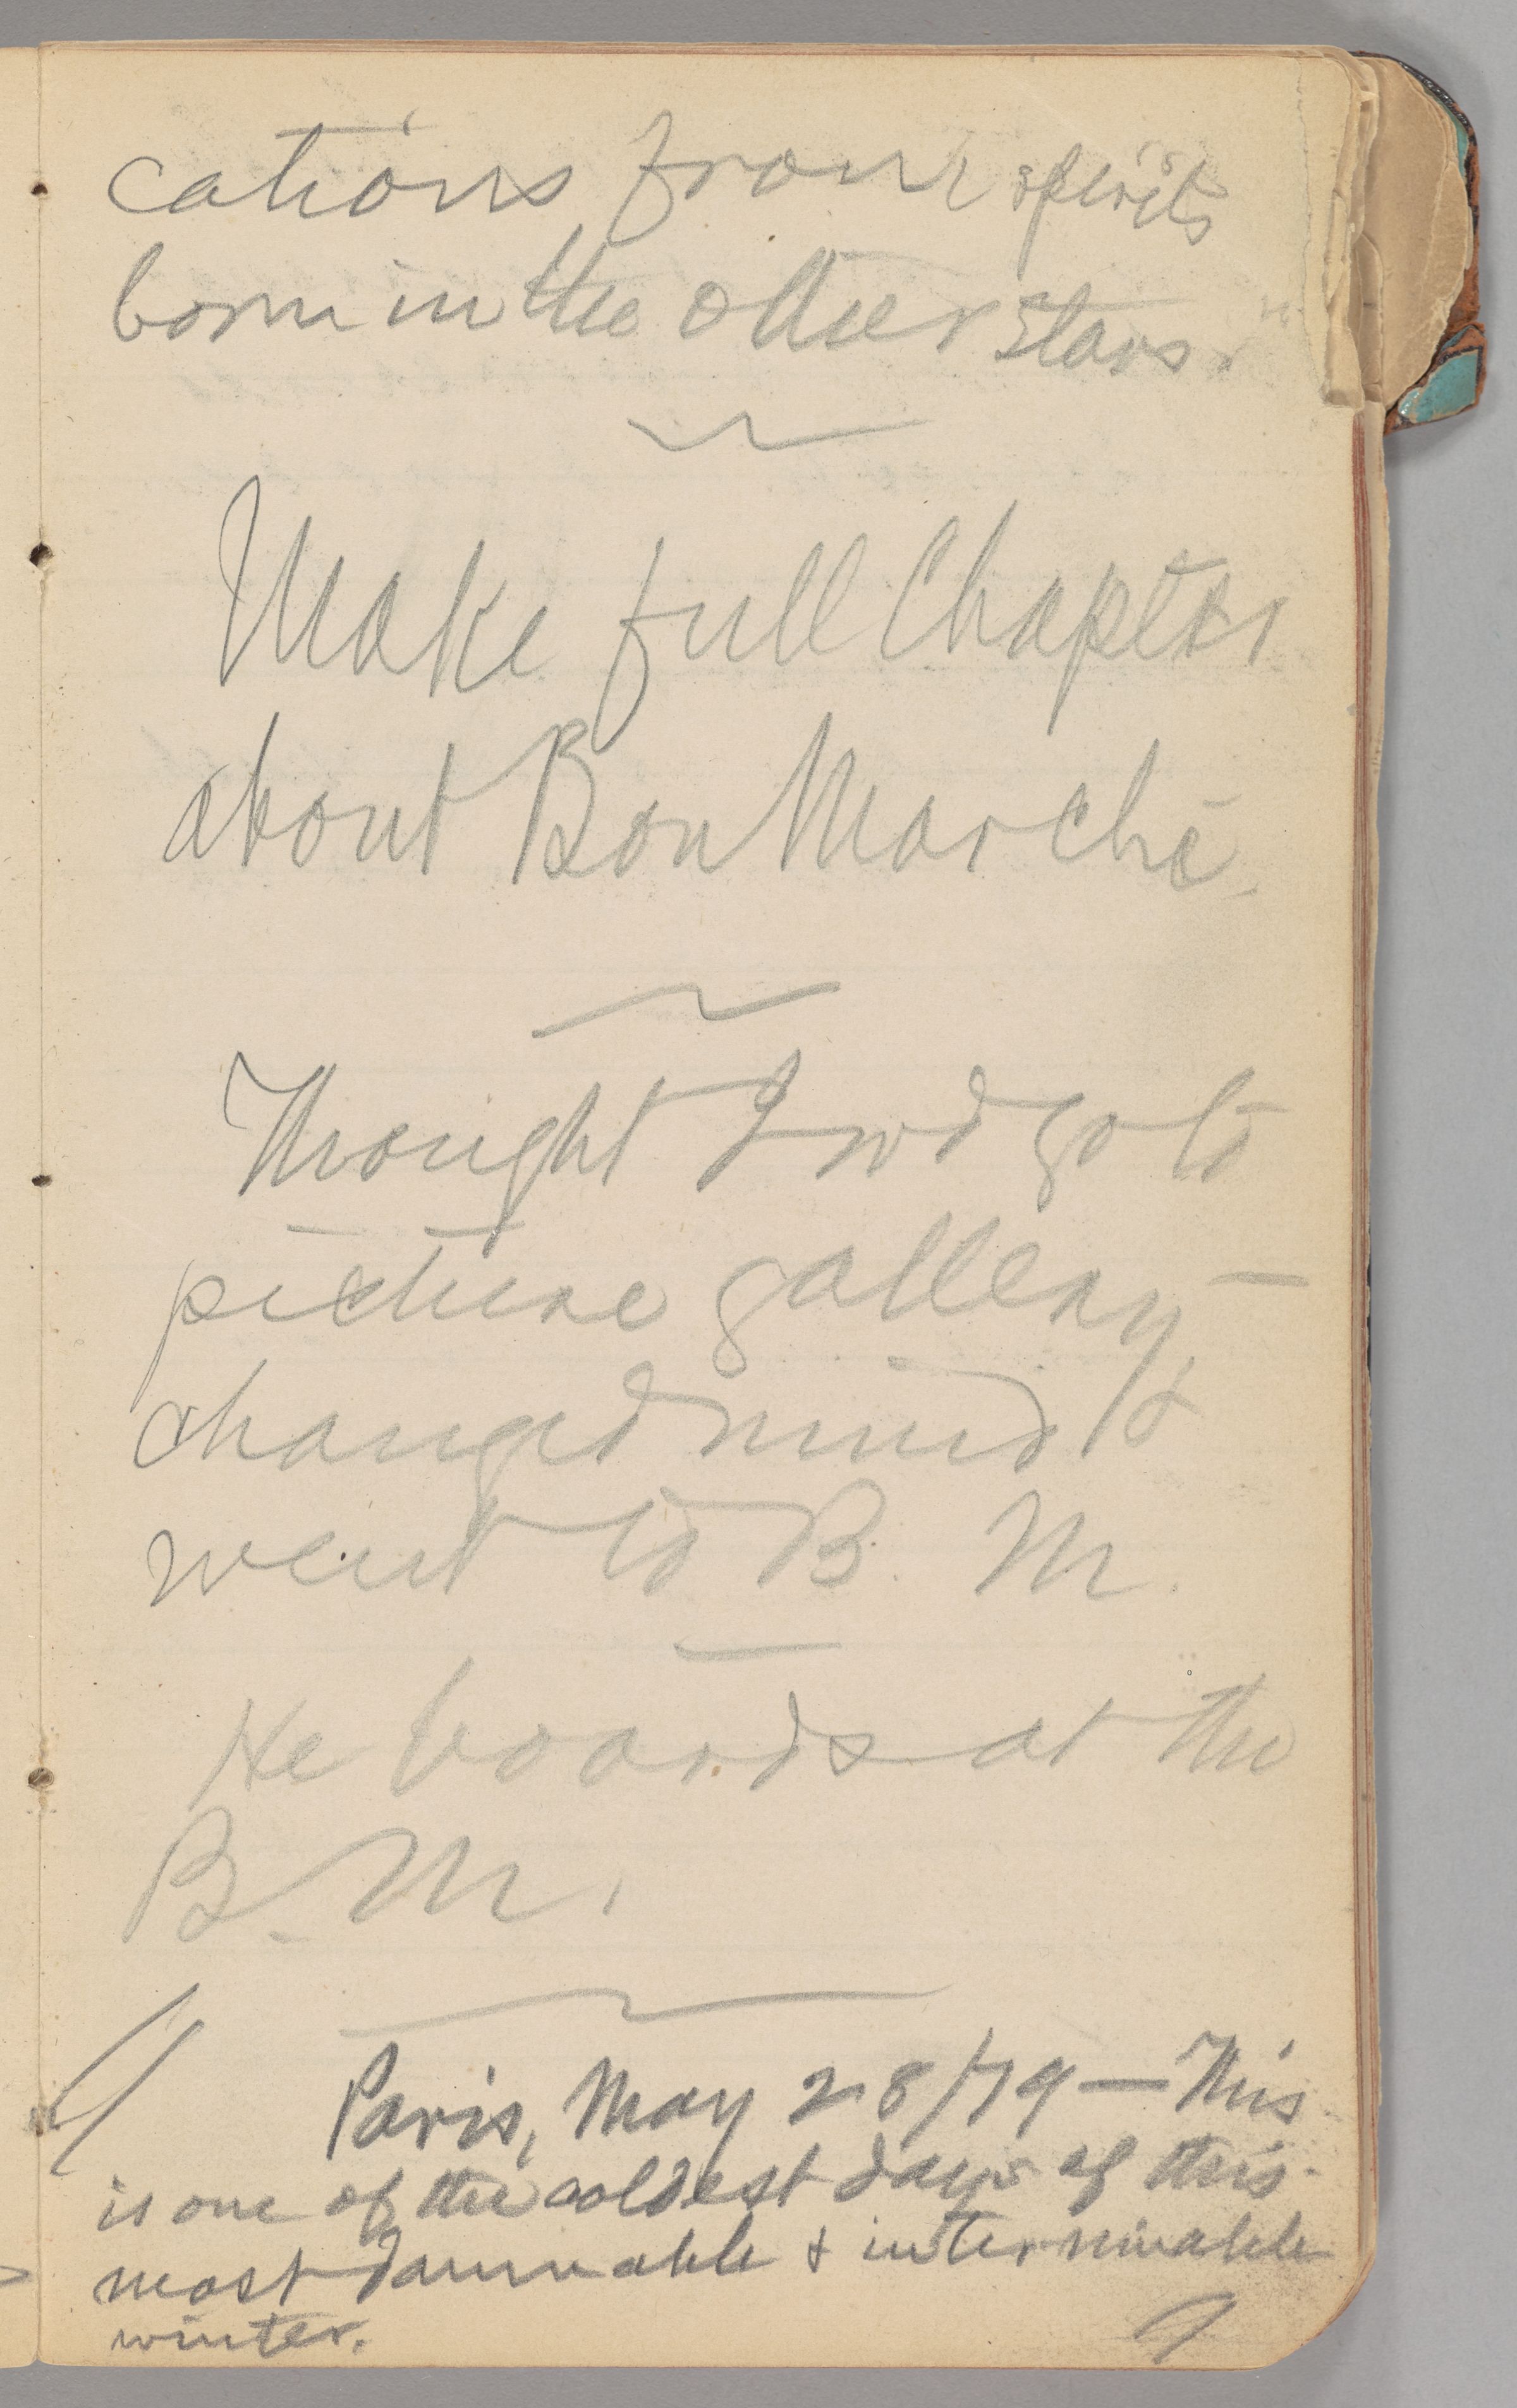 cations from spirits
born in the other stars.
Make full Chapter
about Bon Marché.
Thought I wd go to
picture gallery —
changed mind &
went to B. M.
He boards at the
B. M.
Paris, May 28/79 — This
is one of the coldest days of this
most damnable & interminable
winter.